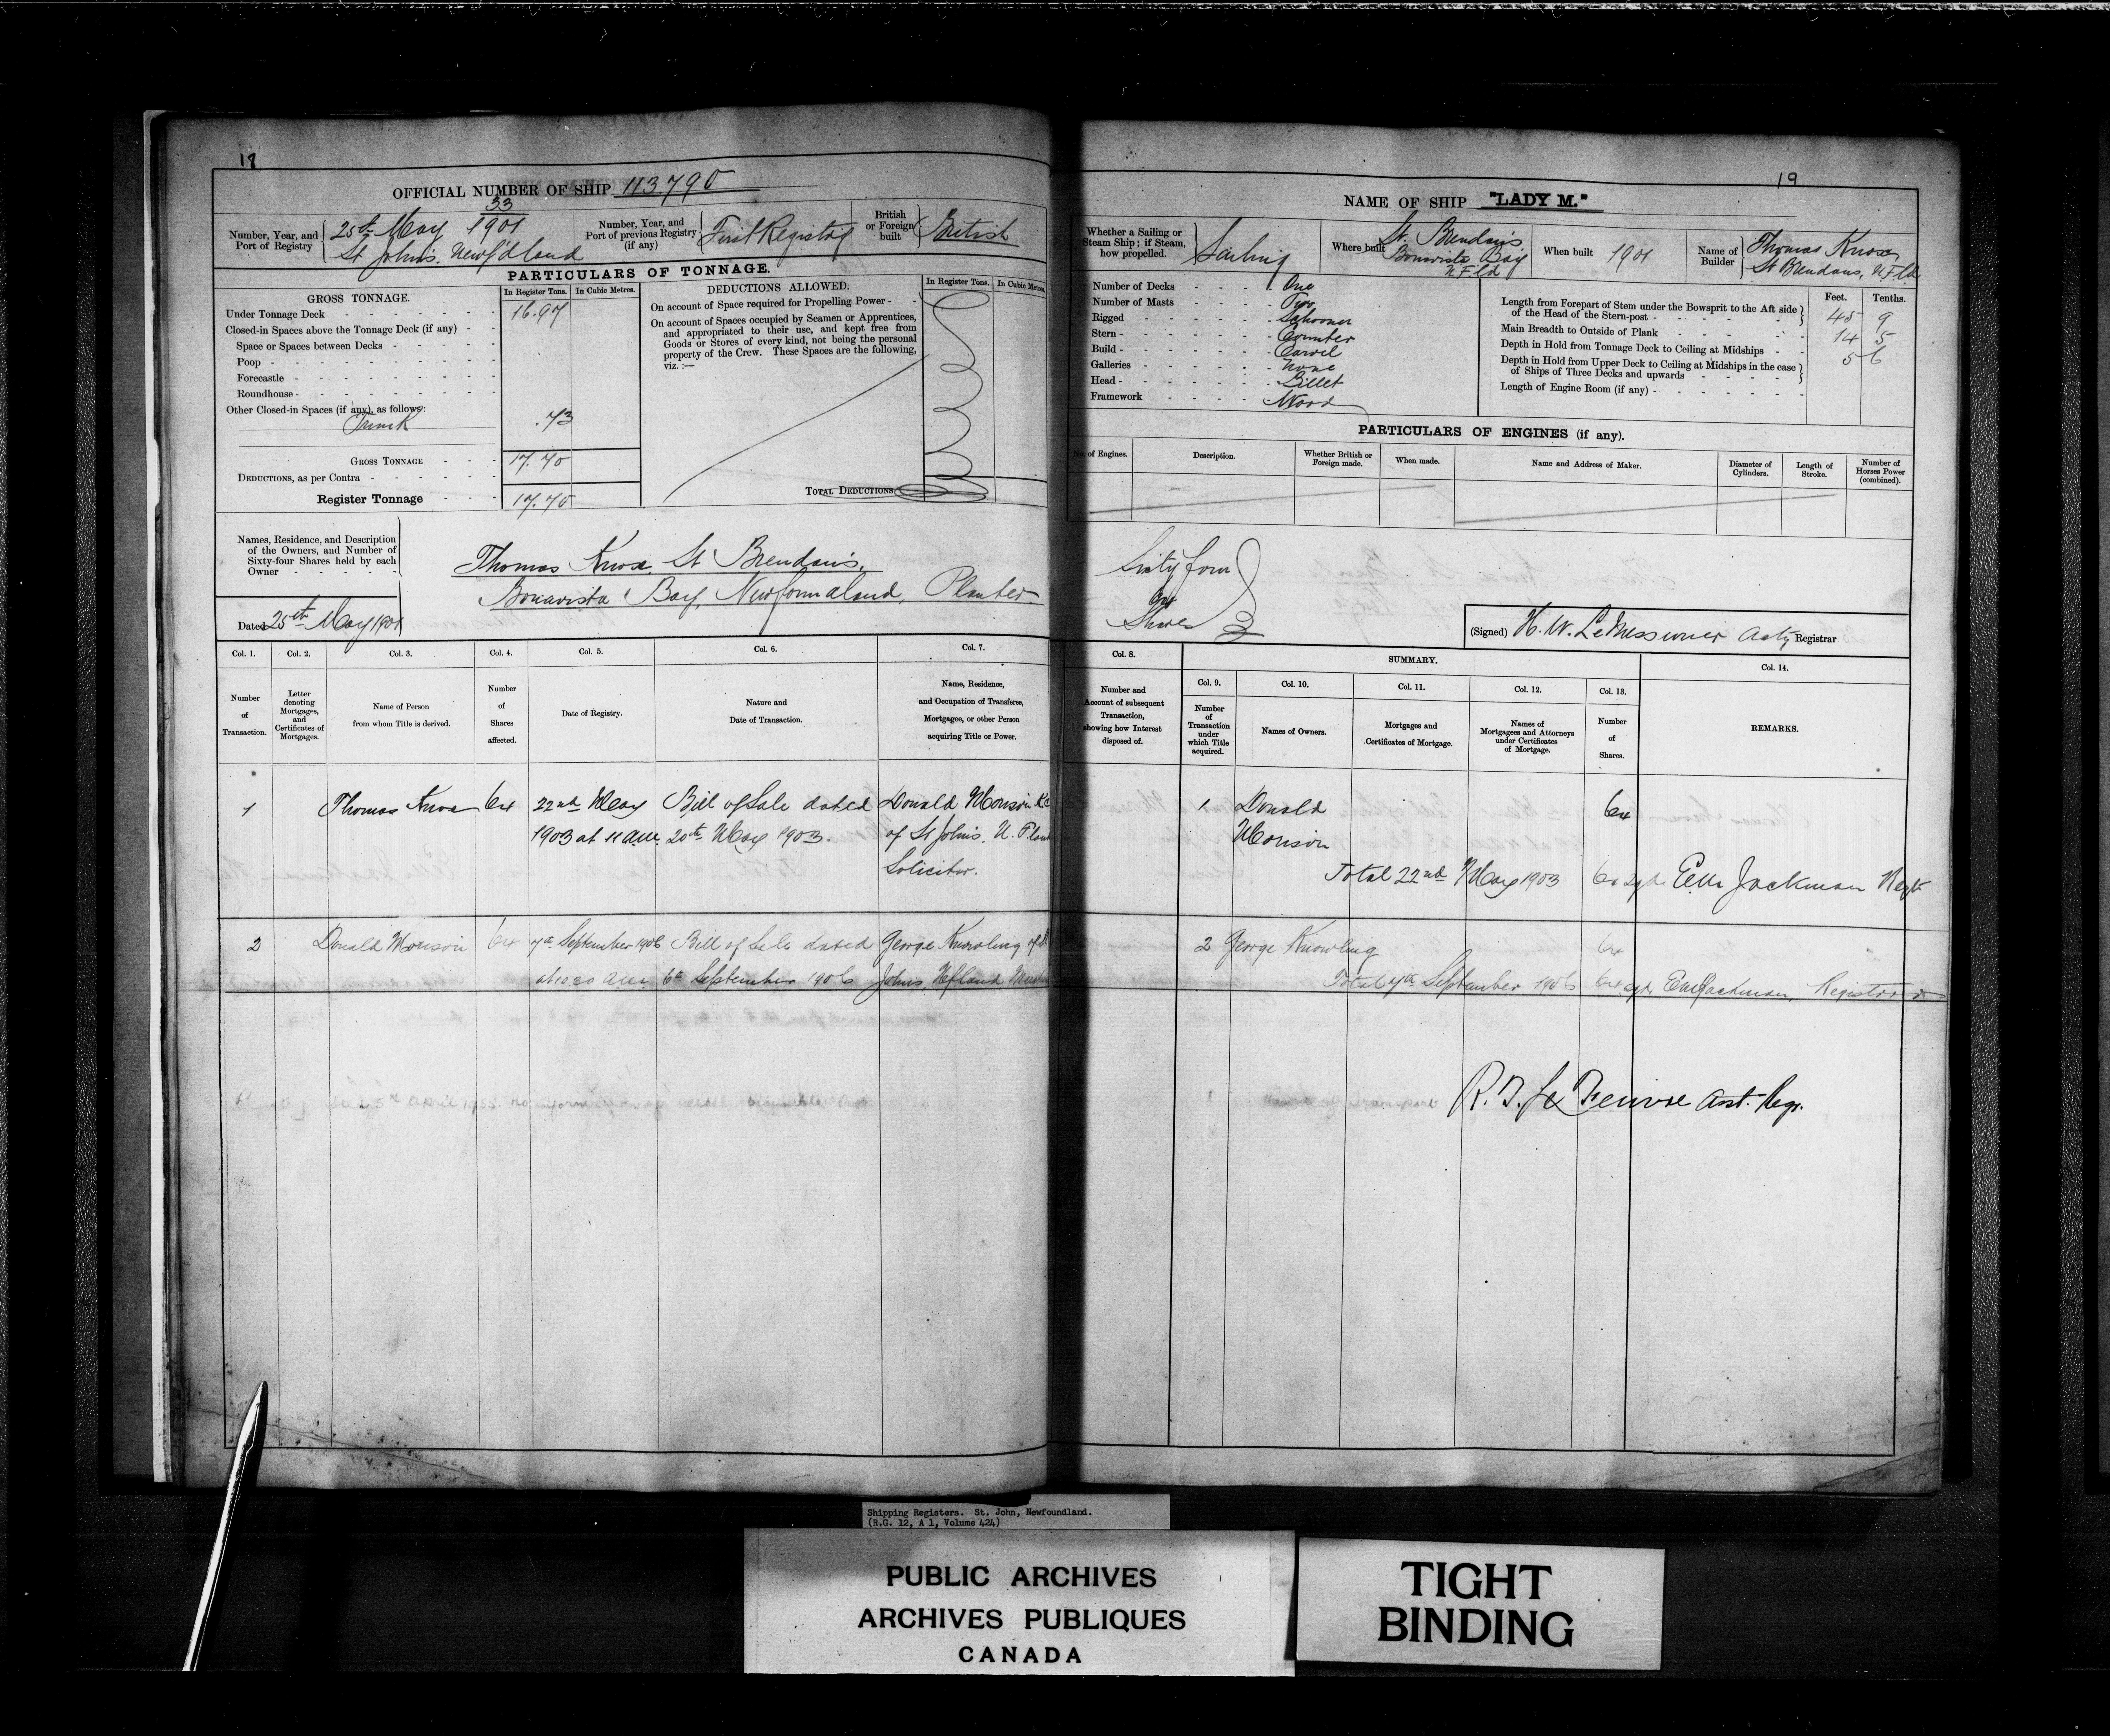 18
OFFICIAL NUMBER OF SHIP 113790
Number, Year, and Port of Registry
33
25th May 1901
St John's. Newf'dland
Number, Year, and Port of previous Registry (if any)
First Registry
British or Foreign built
British
PARTICULARS OF TONNAGE.
GROSS TONNAGE.
In Register Tons.
In Cubic Metres.
Under Tonnage Deck 16.97
Closed-in Spaces above the Tonnage Deck (if any)
Space or Spaces between Decks
Poop
Forecastle
Roundhouse
Other Closed-in Spaces (if any), as follows:
Trunk .73
GROSS TONNAGE 17.70
DEDUCTIONS, as per Contra
Register Tonnage 17.70
DEDUCTIONS ALLOWED.
In Register Tons.
In Cubic Metres.
On account of Space required for Propelling Power
On account of Spaces occupied by Seamen or Apprentices,
and appropriated to their use, and kept free from
Goods or Stores of every kind, not being the personal
property of the Crew. These Spaces are the following,
viz. :—
TOTAL DEDUCTIONS
Names, Residence, and Description
of the Owners, and Number of
Sixty-four Shares held by each
Owner
Thomas Knox, St Brendan's,
Bonavista Bay, Newfoundland, Planter
Dated 25th May 1901
Col. 1.
Number of Transaction.
Col. 2.
Letter denoting Mortgages, and Certificates of Mortgages.
Col. 3.
Name of Person from whom Title is derived.
Col. 4.
Number of Shares affected.
Col. 5.
Date of Registry.
Col. 6.
Nature and Date of Transaction.
Col. 7.
Name, Residence, and Occupation of Transferee, Mortgagee, or other Person acquiring Title or Power.
1 Thomas Knox 64 22nd May Bill of Sale dated Donald Morison K.C.
1903 at 11 a.m. 20th May 1903. of St John's. N. F'land
Solicitor.
2 Donald Morison 64 7th September 1906 Bill of Sale dated George Knowling of St
at 10.30 a.m 6th September 1906 Johns, Nfland
April
19
NAME OF SHIP "LADY M."
Whether a Sailing or Steam Ship; if Steam, how propelled.
Sailing
Where built
St. Brendan's
Bonavista Bay
N.F'ld
When built 1901
Name of Builder
Thomas Knox
St Brendans, N.F.ld
Number of Decks One
Number of Masts Two
Rigged Schooner
Stern Counter
Build Carvel
Galleries None
Head Billet
Framework Wood
Feet. Tenths.
Length from Forepart of Stem under the Bowsprit to the Aft side
of the Head of the Stern-post 45 9
Main Breadth to Outside of Plank 14 5
Depth in Hold from Tonnage Deck to Ceiling at Midships 5 6
Depth in Hold from Upper Deck to Ceiling at Midships in the case
of Ships of Three Decks and upwards
Length of Engine Room (if any)
PARTICULARS OF ENGINES (if any).
No. of Engines.
Description.
Whether British or Foreign made.
When made.
Name and Address of Maker.
Diameter of Cylinders.
Length of Stroke.
Number of Horses Power (combined).
Sixty four
Shares
(Signed) H. W. LeMessurier Actg Registrar
Col. 8.
Number and Account of subsequent Transaction, showing how Interest disposed of.
SUMMARY.
Col. 9.
Number of Transaction under which Title acquired.
Col. 10.
Names of Owners.
Col. 11.
Mortgages and Certificates of Mortgage.
Col. 12.
Names of Mortgagees and Attorneys under Certificates of Mortgage.
Col. 13.
Number of Shares.
Col. 14.
REMARKS.
1 Donald 64
Morison
Total 22nd May 1903 64 sgd E.M. Jackman Regtr
2 George Knowling 64
Total 7th September 1906 64 sgd E.M. Jackman, Registrar
Asst. Regr.
Shipping Registers. St. John, Newfoundland.
(R.G. 12, A 1, Volume 424)
PUBLIC ARCHIVES
ARCHIVES PUBLIQUES
CANADA
TIGHT
BINDING